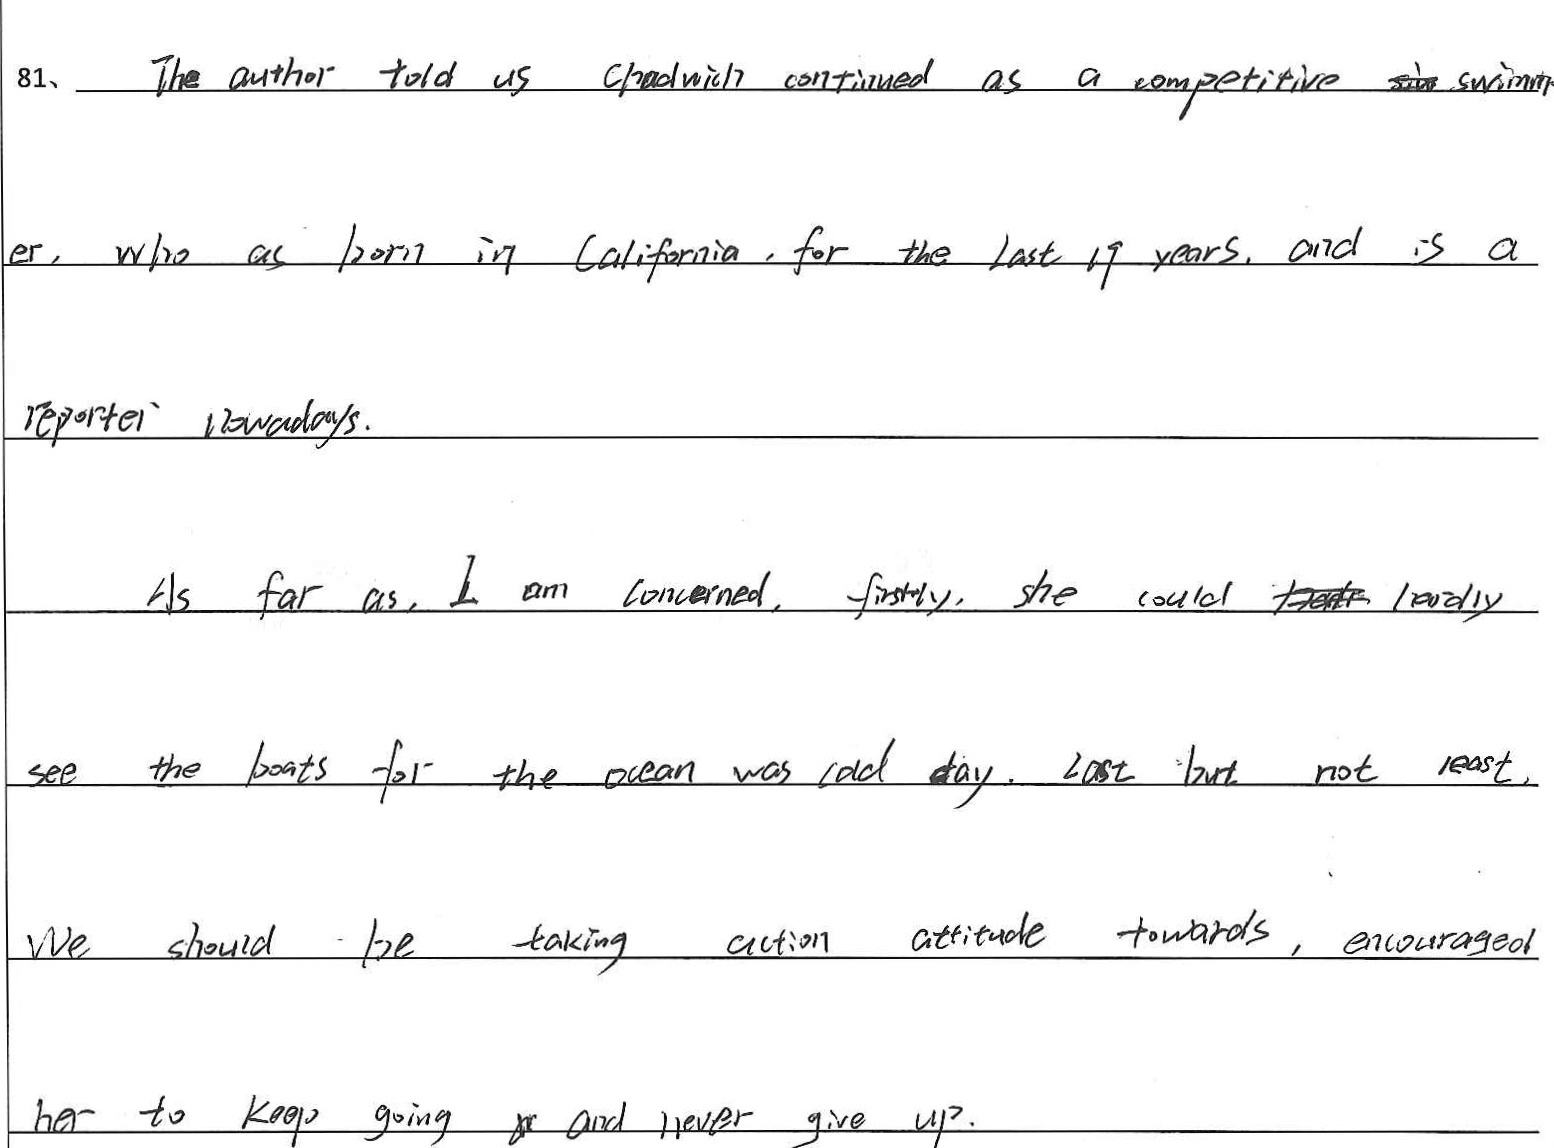 81、 The author told us Chadwich continued as a competitive swimm
er, who as born in California, for the last 19 years, and is a
reporter nowadays.
As far as, I am concerned, firstly, she could hardly
see the boats for the ocean was cold day. Last but not least,
We should be taking action attitude towards, encouraged
her to keep going and never give up.